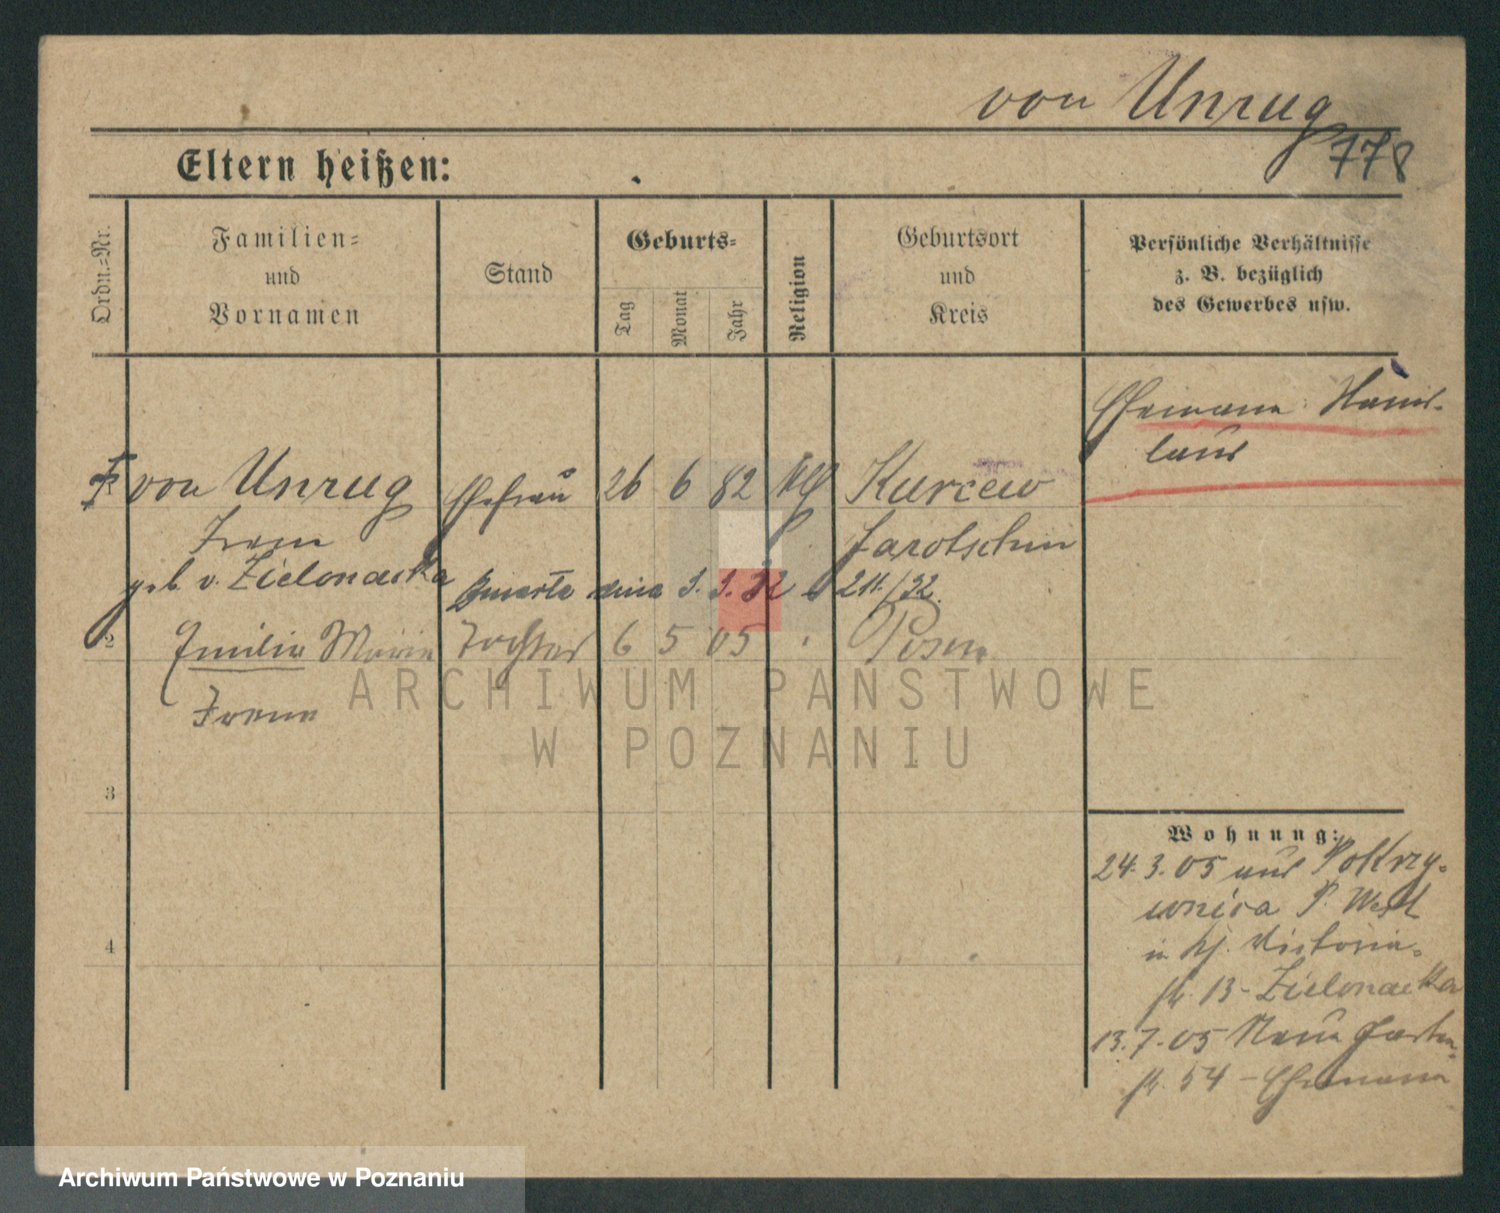 von Unrug
778
Eltern heißen:
Ordn.-Nr.
Familien-
und
Vornamen
Stand
Geburts-
Tag
Monat
Jahr
Religion
Geburtsort
und
Kreis
Persönliche Verhältnisse
z. B. bezüglich
des Gewerbes usw.
Ehemann Stanis-
laus
von Unrug Ehefrau 26 6 82 Kurcew
Irene Jarotschin
geb v. Zielonacka zmarła dnia 211./32.
2 Emilie Marie Tochter 6 5 05 Posen
Irene
ARCHIWUM PAŃSTWOWE
W POZNANIU
3
4
Wohnung:
24.3.05 aus Pokrzy-
wnica P. West
in Viktoria-
str. 13 - Zielonacka
13.7.05 Neue Garten-
str. 54 - Ehemann
Archiwum Państwowe w Poznaniu